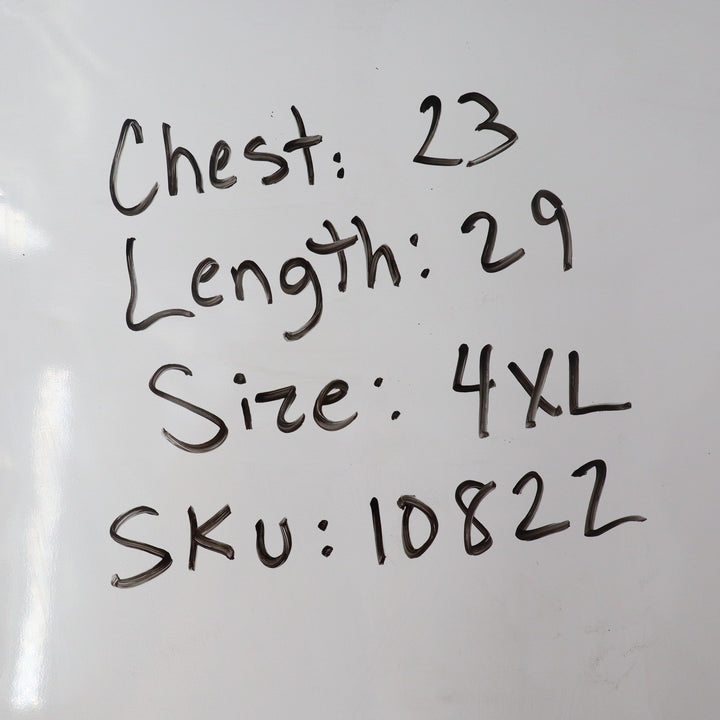 Chest: 23
Length: 29
Size: 4XL
SKU: 10822